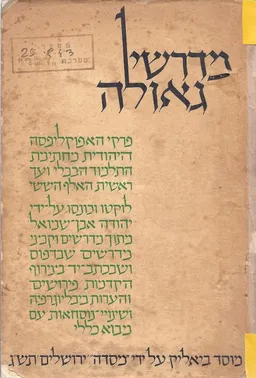 מדרשי
גאולה
פרקי האפוקליפסה
היהודית מחתימת
התלמוד הבבלי ועד
ראשית האלף הששי
לוקטו וכונסו על־ידי
יהודה אבן־שמואל
מתוך מדרשים וקבצי
מדרשים שבדפוס
ושבכתב־יד בצירוף
הקדמות פירושים
והערות בבליוגרפיה
ושינויי־נוסחאות עם
מבוא כללי
מוסד ביאליק על־ידי "מסדה" ירושלים תש״ג